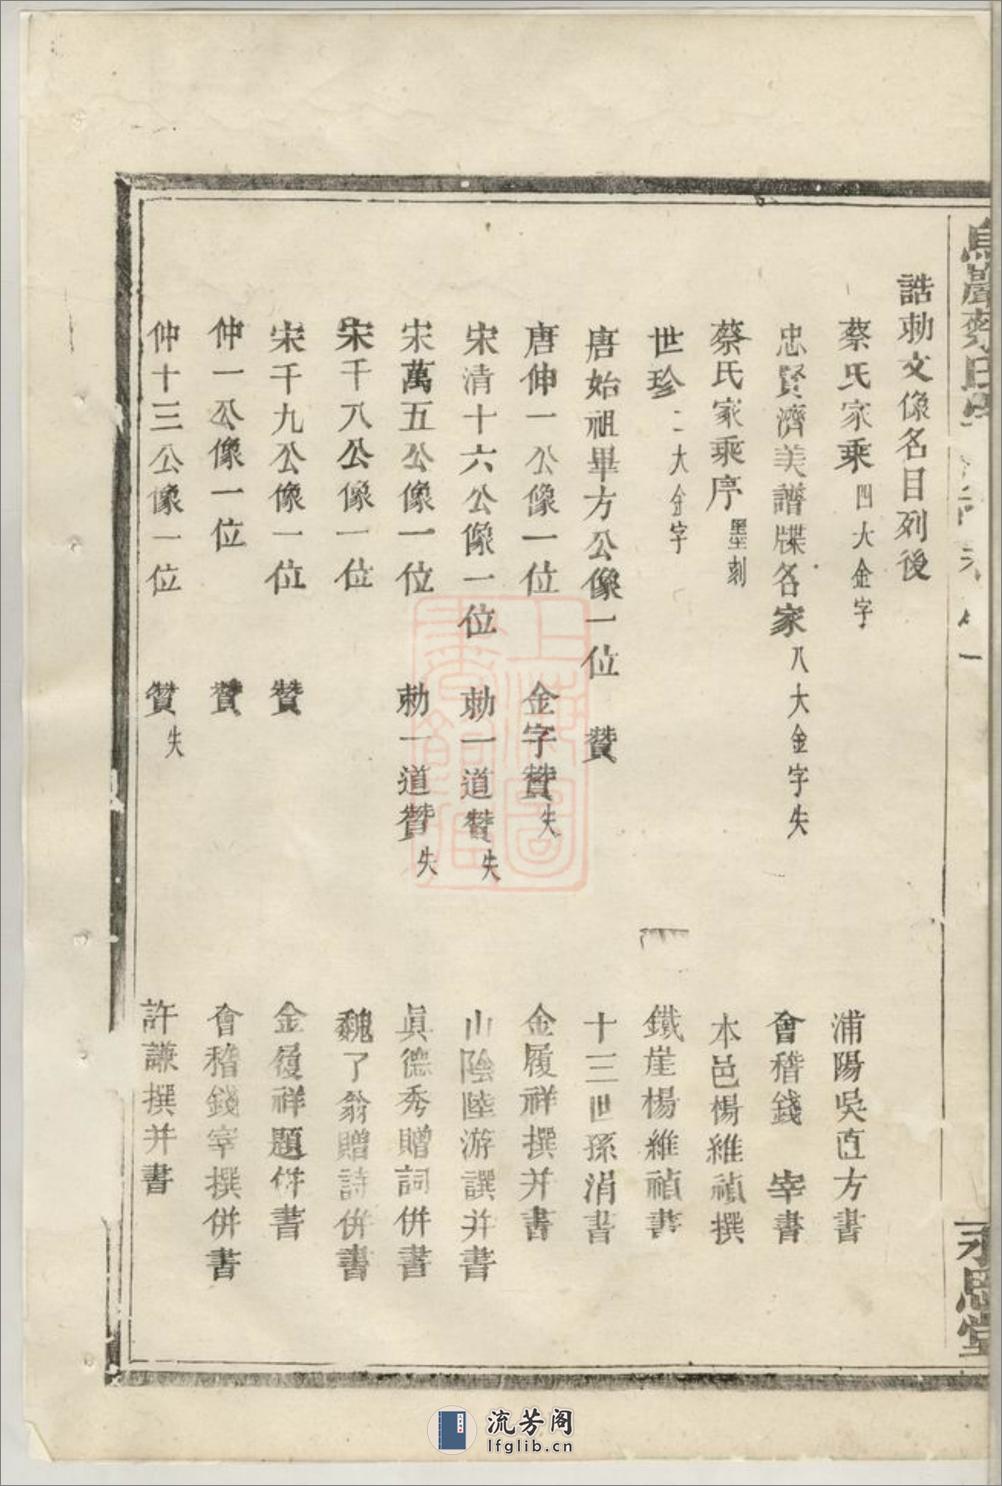 誥勅文像名目列後
蔡氏家乘 四大金字 浦陽吳直方書
忠賢濟美譜牒名家 八大金字失 會稽錢 宰書
蔡氏家乘序 墨刻 本邑楊維禎撰
世珍 二大金字 鐵崖楊維禎書
唐始祖畢方公像一位 贊 十三世孫涓書
唐伸一公像一位 金字贊失 金履祥撰并書
宋清十六公像一位 勅一道贊失 山陰陸游譔并書
宋萬五公像一位 勅一道贊失 眞德秀贈詞併書
宋千八公像一位 魏了翁贈詩併書
宋千九公像一位 贊 金履祥題併書
仲一公像一位 贊 會稽錢宰撰併書
仲十三公像一位 贊失 許謙撰并書
永思堂
上海圖書館藏
流芳阁
lfglib.cn